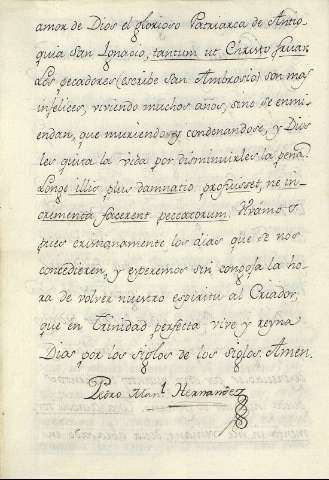 amor de Dios el glorioso Patriarca de Antio-
quia San Ignacio, tantum ut Christo fruar.
Los pecadores (escribe San Ambrosio) son mas
infelices, viviendo muchos años, sino se enmi-
endan, que muriendo, y condenandose, y Dios
les quita la vida por disminuirles la pena.
Longe illis plus damnatio profuisset, ne in-
crementa facerent peccatorum.
pues cristianamente los dias que se nos
concedieren, y esperemos sin congoja la ho-
ra de volver nuestro espiritu al Criador,
que en Trinidad perfecta vive y reyna
Dios por los siglos de los siglos. Amen.
Pedro Man.l Hernandez